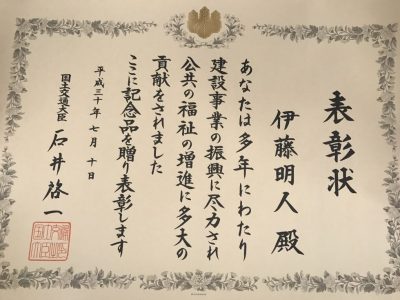 表彰状
伊藤明人 殿
あなたは多年にわたり
建設事業の振興に尽力され
公共の福祉の増進に多大の
貢献をされました
ここに記念品を贈り表彰します
平成三十年七月十日
国土交通大臣 石井啓一